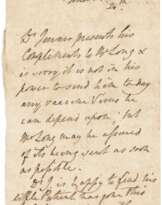 Dr Jenner presents his
Compliments to Mr Long &
is sorry it is not in his
power to send him to day
any vaccine Virus he
can depend upon; but
Mr Long may be assured
of its being sent as soon
as possible.
Dr J is happy to find his
little Patient has gone thro